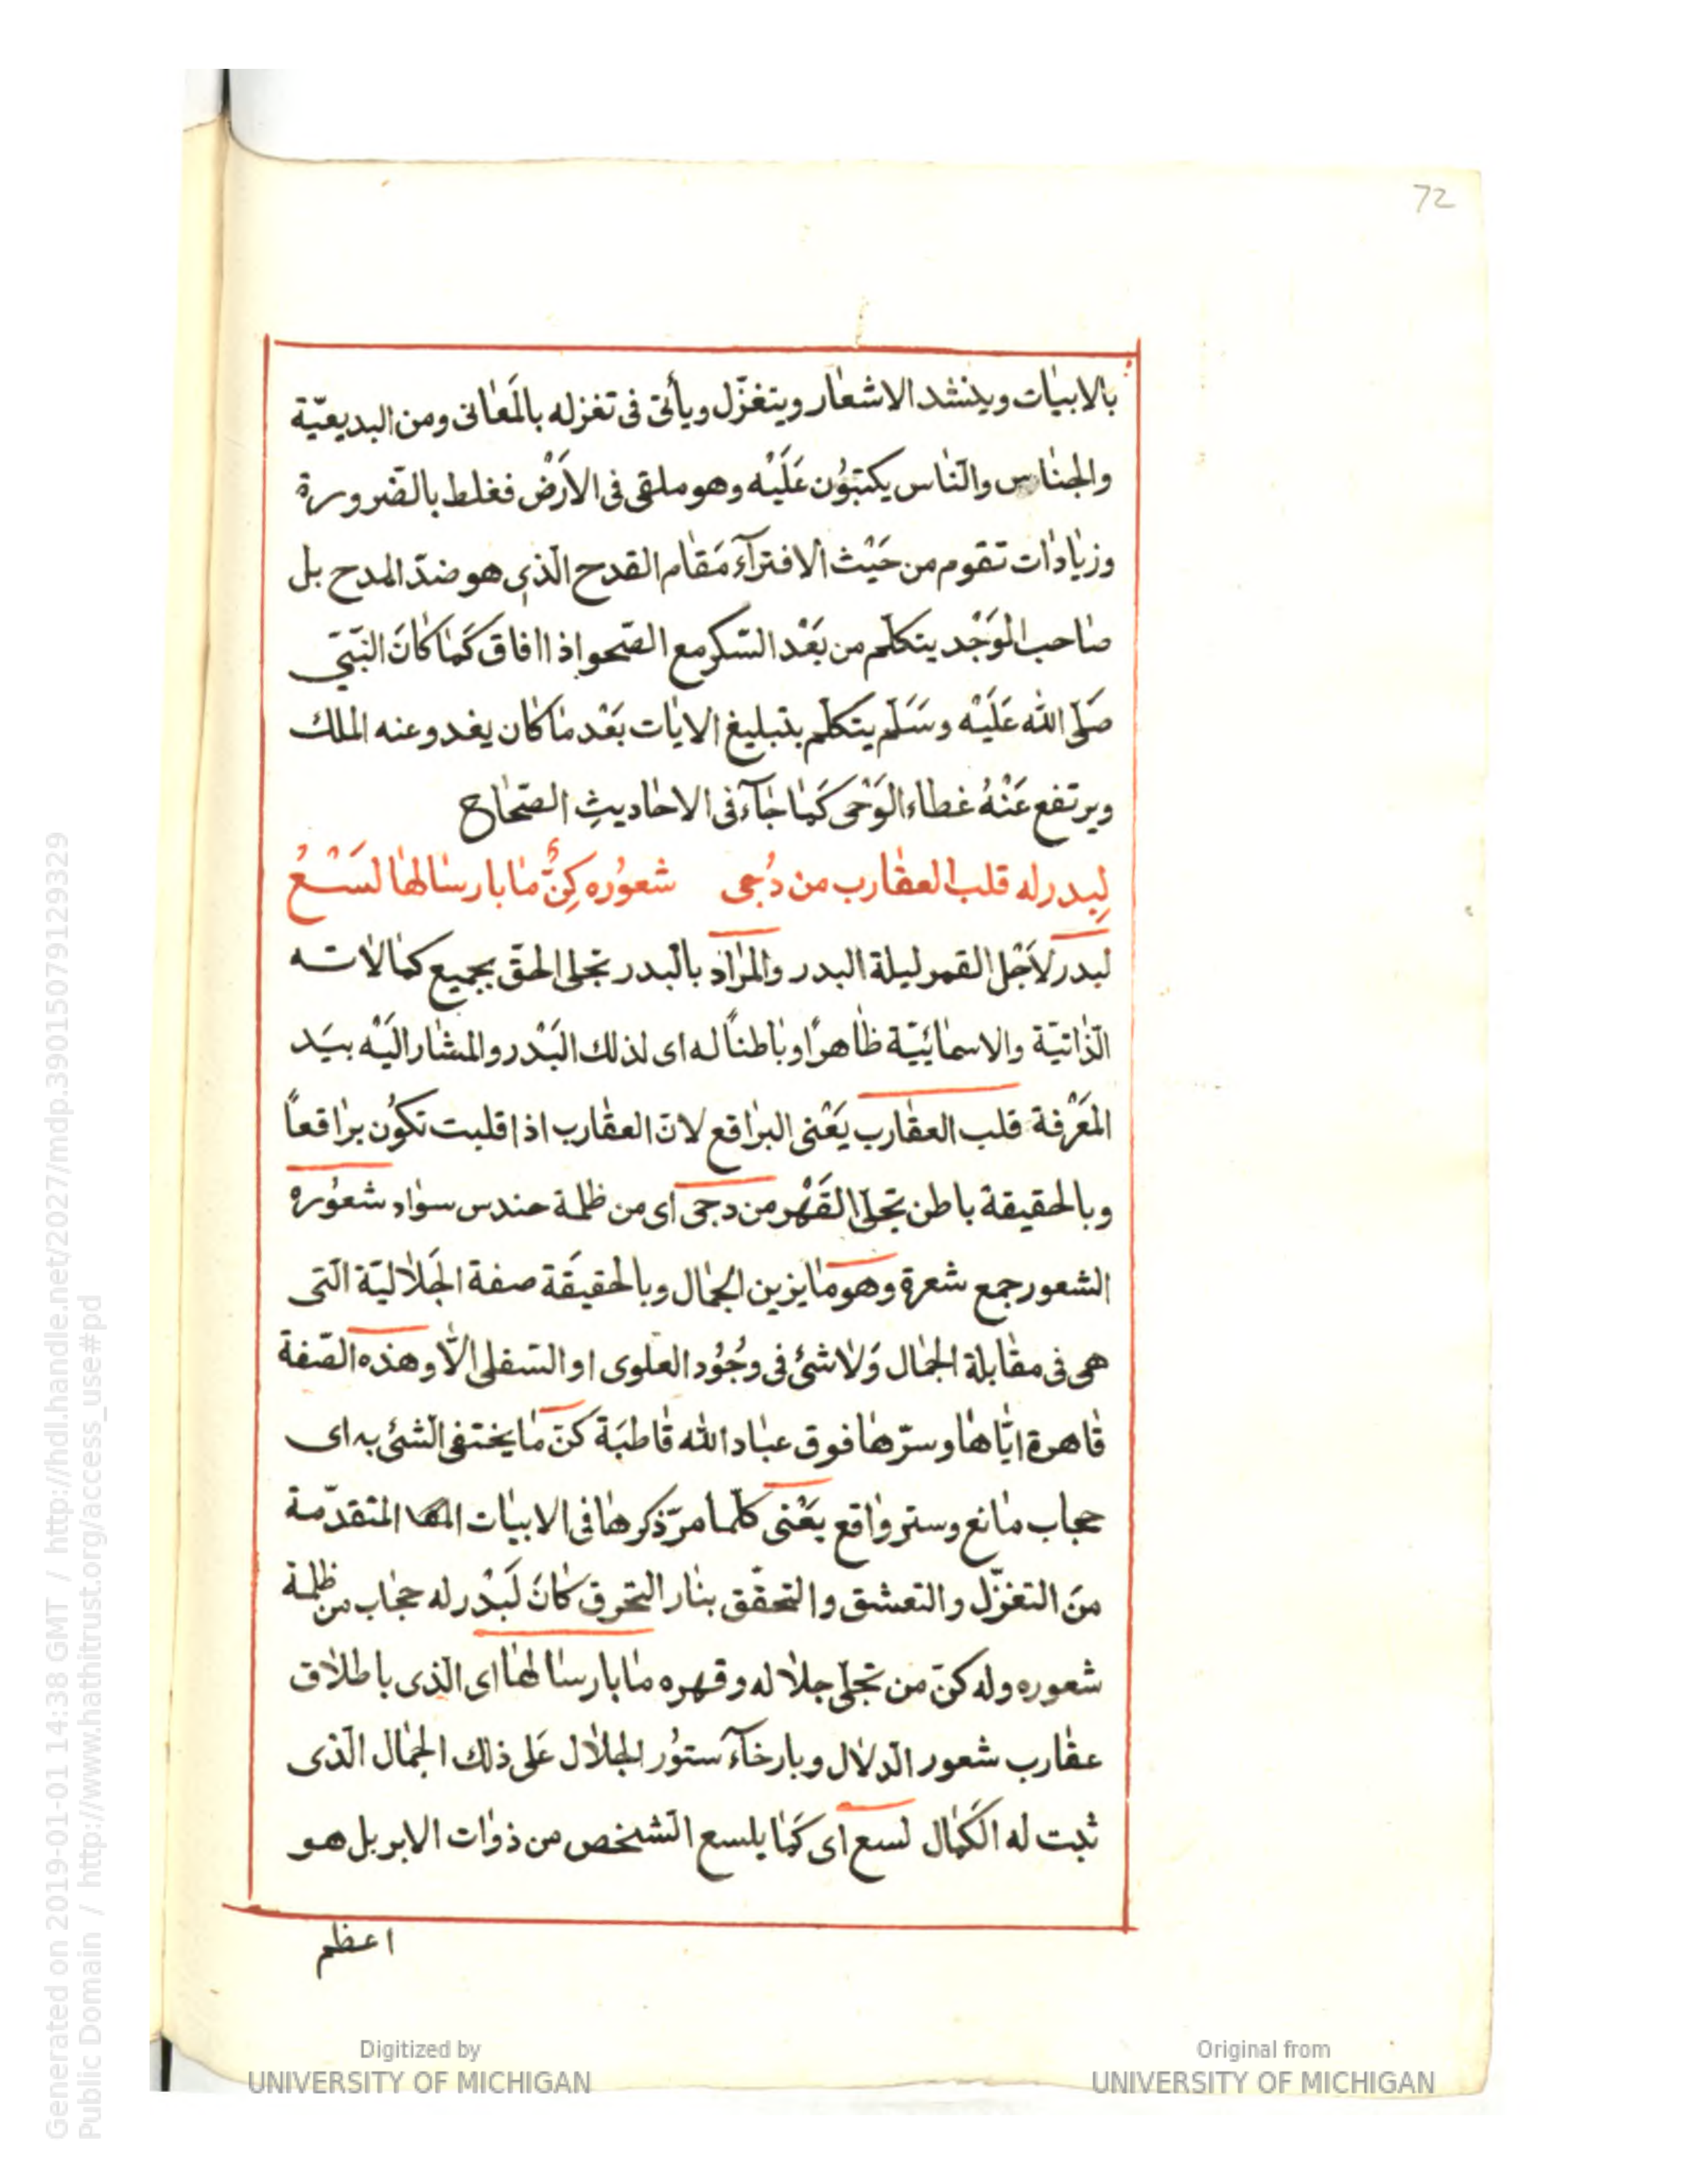 72
بالابيات وينشد الاشعار ويتغزّل ويأتى فى تغزله بالمَعانى ومن البديعيّة
والجناس والنّاس يكتبوُن عَلَيْه وهو ملقى فى الاَرْض فغلط بالضّرورة
وزيادات تقوم من حَيْث الافترآءَ مَقام القدح الّذى هو ضدّ المدح بل
صاحب الوَجْد يتكلّم من بَعْد السّكر مع الصّحو اذا افاق كَمَا كانَ النّبىّ
صَلّى الله عَلَيْه وسَلّم يتكلّم بتبليغ الايات بَعْد ما كان يغدو عنه الملك
ويرتفع عَنْهُ غطاء الوَحْى كَمَا جآءَ فى الاحاديثِ الصّحاح
لِبدر له قلب العقارب من دُجى شعوُره كِنٌّ ما بارسالها لَسْعُ
لبدر لاَجْل القمر ليلة البدر والمرَاد بالبدر تجلى الحقّ بجميع كمالاته
الذّاتيّة والاسمائيّة ظاهرًا وباطناً له اى لذلك البَدْر والمشار اليَه بيَد
المَعْرفة قلب العقارب يَعْنى البراقع لانّ العقارب اذا قلبت تكوُن براقعاً
وبالحقيقة باطن تجلّى القَهْر من دجى اى من ظلمة حندس سواد شعوُره
الشعور جمع شعرة وهو ما يزين الجمال وبالحقيقَة صفة الجَلاليّة الّتى
هى فى مقابلة الجمال وَلاشئ فى وجُوُد العلوى او السّفلى الاّ وهذه الصّفة
قاهرة ايّاها وسرّها فوق عباد الله قاطبَة كنّ ما يختفى الشئ به اى
حجاب مانع وستر واقع يَعْنى كلّما مرّ ذكرها فى الابيات المتقدّمة
منَ التغزّل والتعشق والتحقّق بنار التحرق كانَ لَبَدْر له حجاب من ظلمة
شعوره وله كنّ من تجلّى جلاله وقهره ما بارسالها اى الّذى باطلاق
عقارب شعور الدّلال وبارخآءَ ستوُر الجلال عَلى ذلك الجمال الّذى
ثبت له الكَمال لسع اى كَمَا يلسع الشّخص من ذوات الابر بل هو
اعظم
Generated on 2019-01-01 14:38 GMT / http://hdl.handle.net/2027/mdp.39015079129329
Public Domain / http://www.hathitrust.org/access_use#pd
Digitized by
UNIVERSITY OF MICHIGAN
Original from
UNIVERSITY OF MICHIGAN